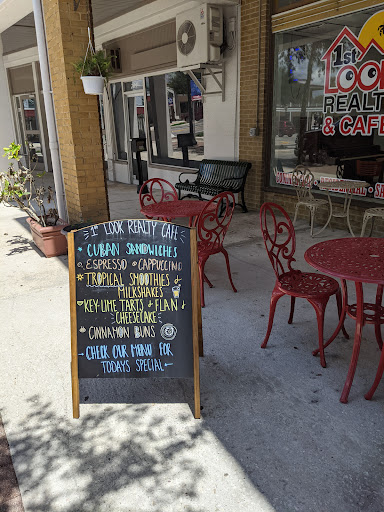 1st
LOOK
REALTY
& CAFE
1st LOOK REALTY CAFE
CUBAN SANDWICHES
ESPRESSO CAPPUCCINO
TROPICAL SMOOTHIES
MILKSHAKES
KEY-LIME TARTS FLAN
CHEESECAKE
CINNAMON BUNS
CHECK OUR MENU FOR
TODAYS SPECIAL